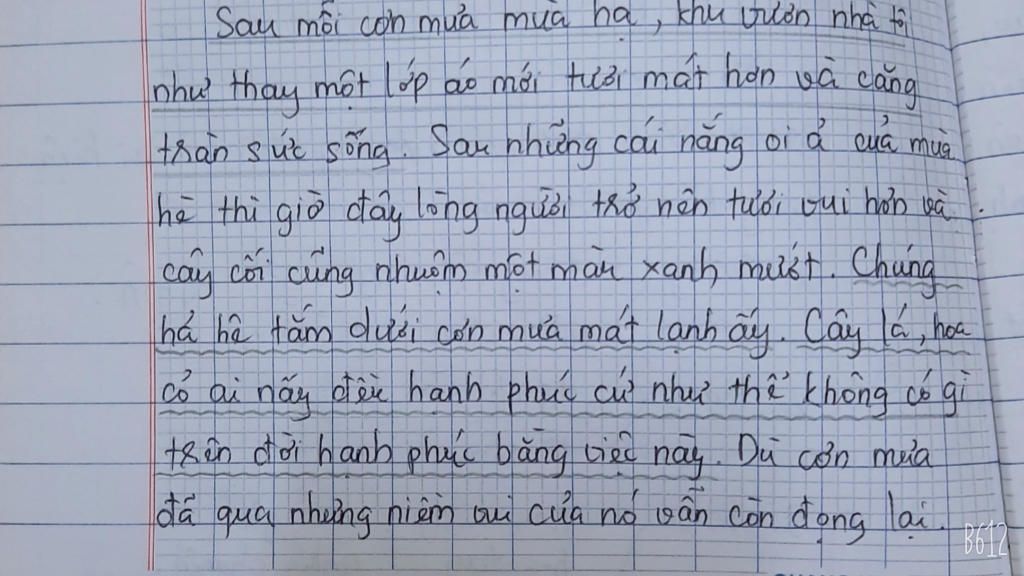 Sau mỗi cơn mưa mùa hạ, khu vườn nhà tôi
như thay một lớp áo mới tươi mát hơn và căng
tràn sức sống. Sau những cái nắng oi ả của mùa
hè thì giờ đây lòng người trở nên tươi vui hơn và
cây cối cũng nhuộm một màu xanh mướt. Chúng
hả hê tắm dưới cơn mưa mát lạnh ấy. Cây lá, hoa
cỏ ai nấy đều hạnh phúc cứ như thể không có gì
trên đời hạnh phúc bằng việc này. Dù cơn mưa
đã qua nhưng niềm vui của nó vẫn còn đọng lại.
B612